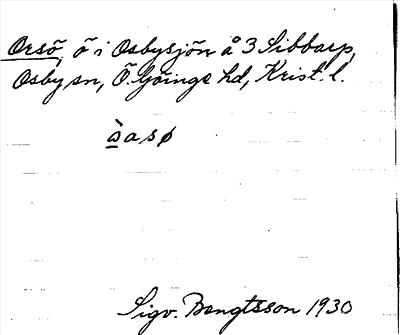 Orsö, ö i Osbysjön å 3 Sibbarp,
Osby sn, Ö. Göinge hd, Krist. l.
à̲sasø
Sigv. Bengtsson 1930